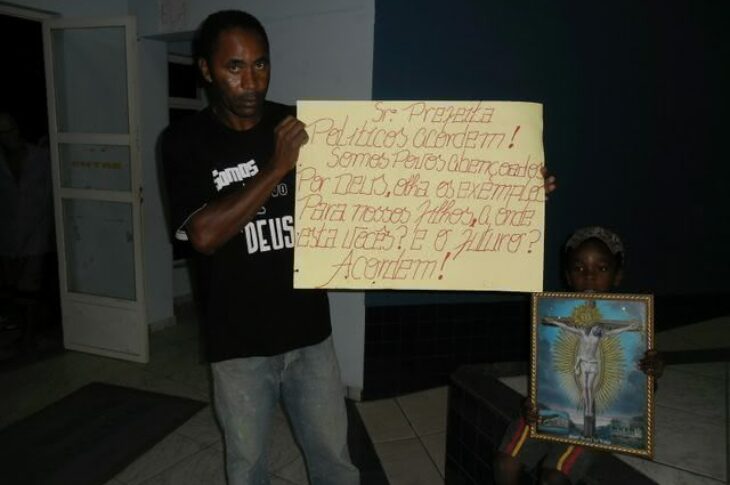 ENTRE
Somos
VO
DEUS
Sr. Prefeita
Politicos acordem!
Somos Povos abençoados
Por Deus, olha os exemplos
Para nossos filhos, a onde
esta vocês? E o futuro?
Acordem!